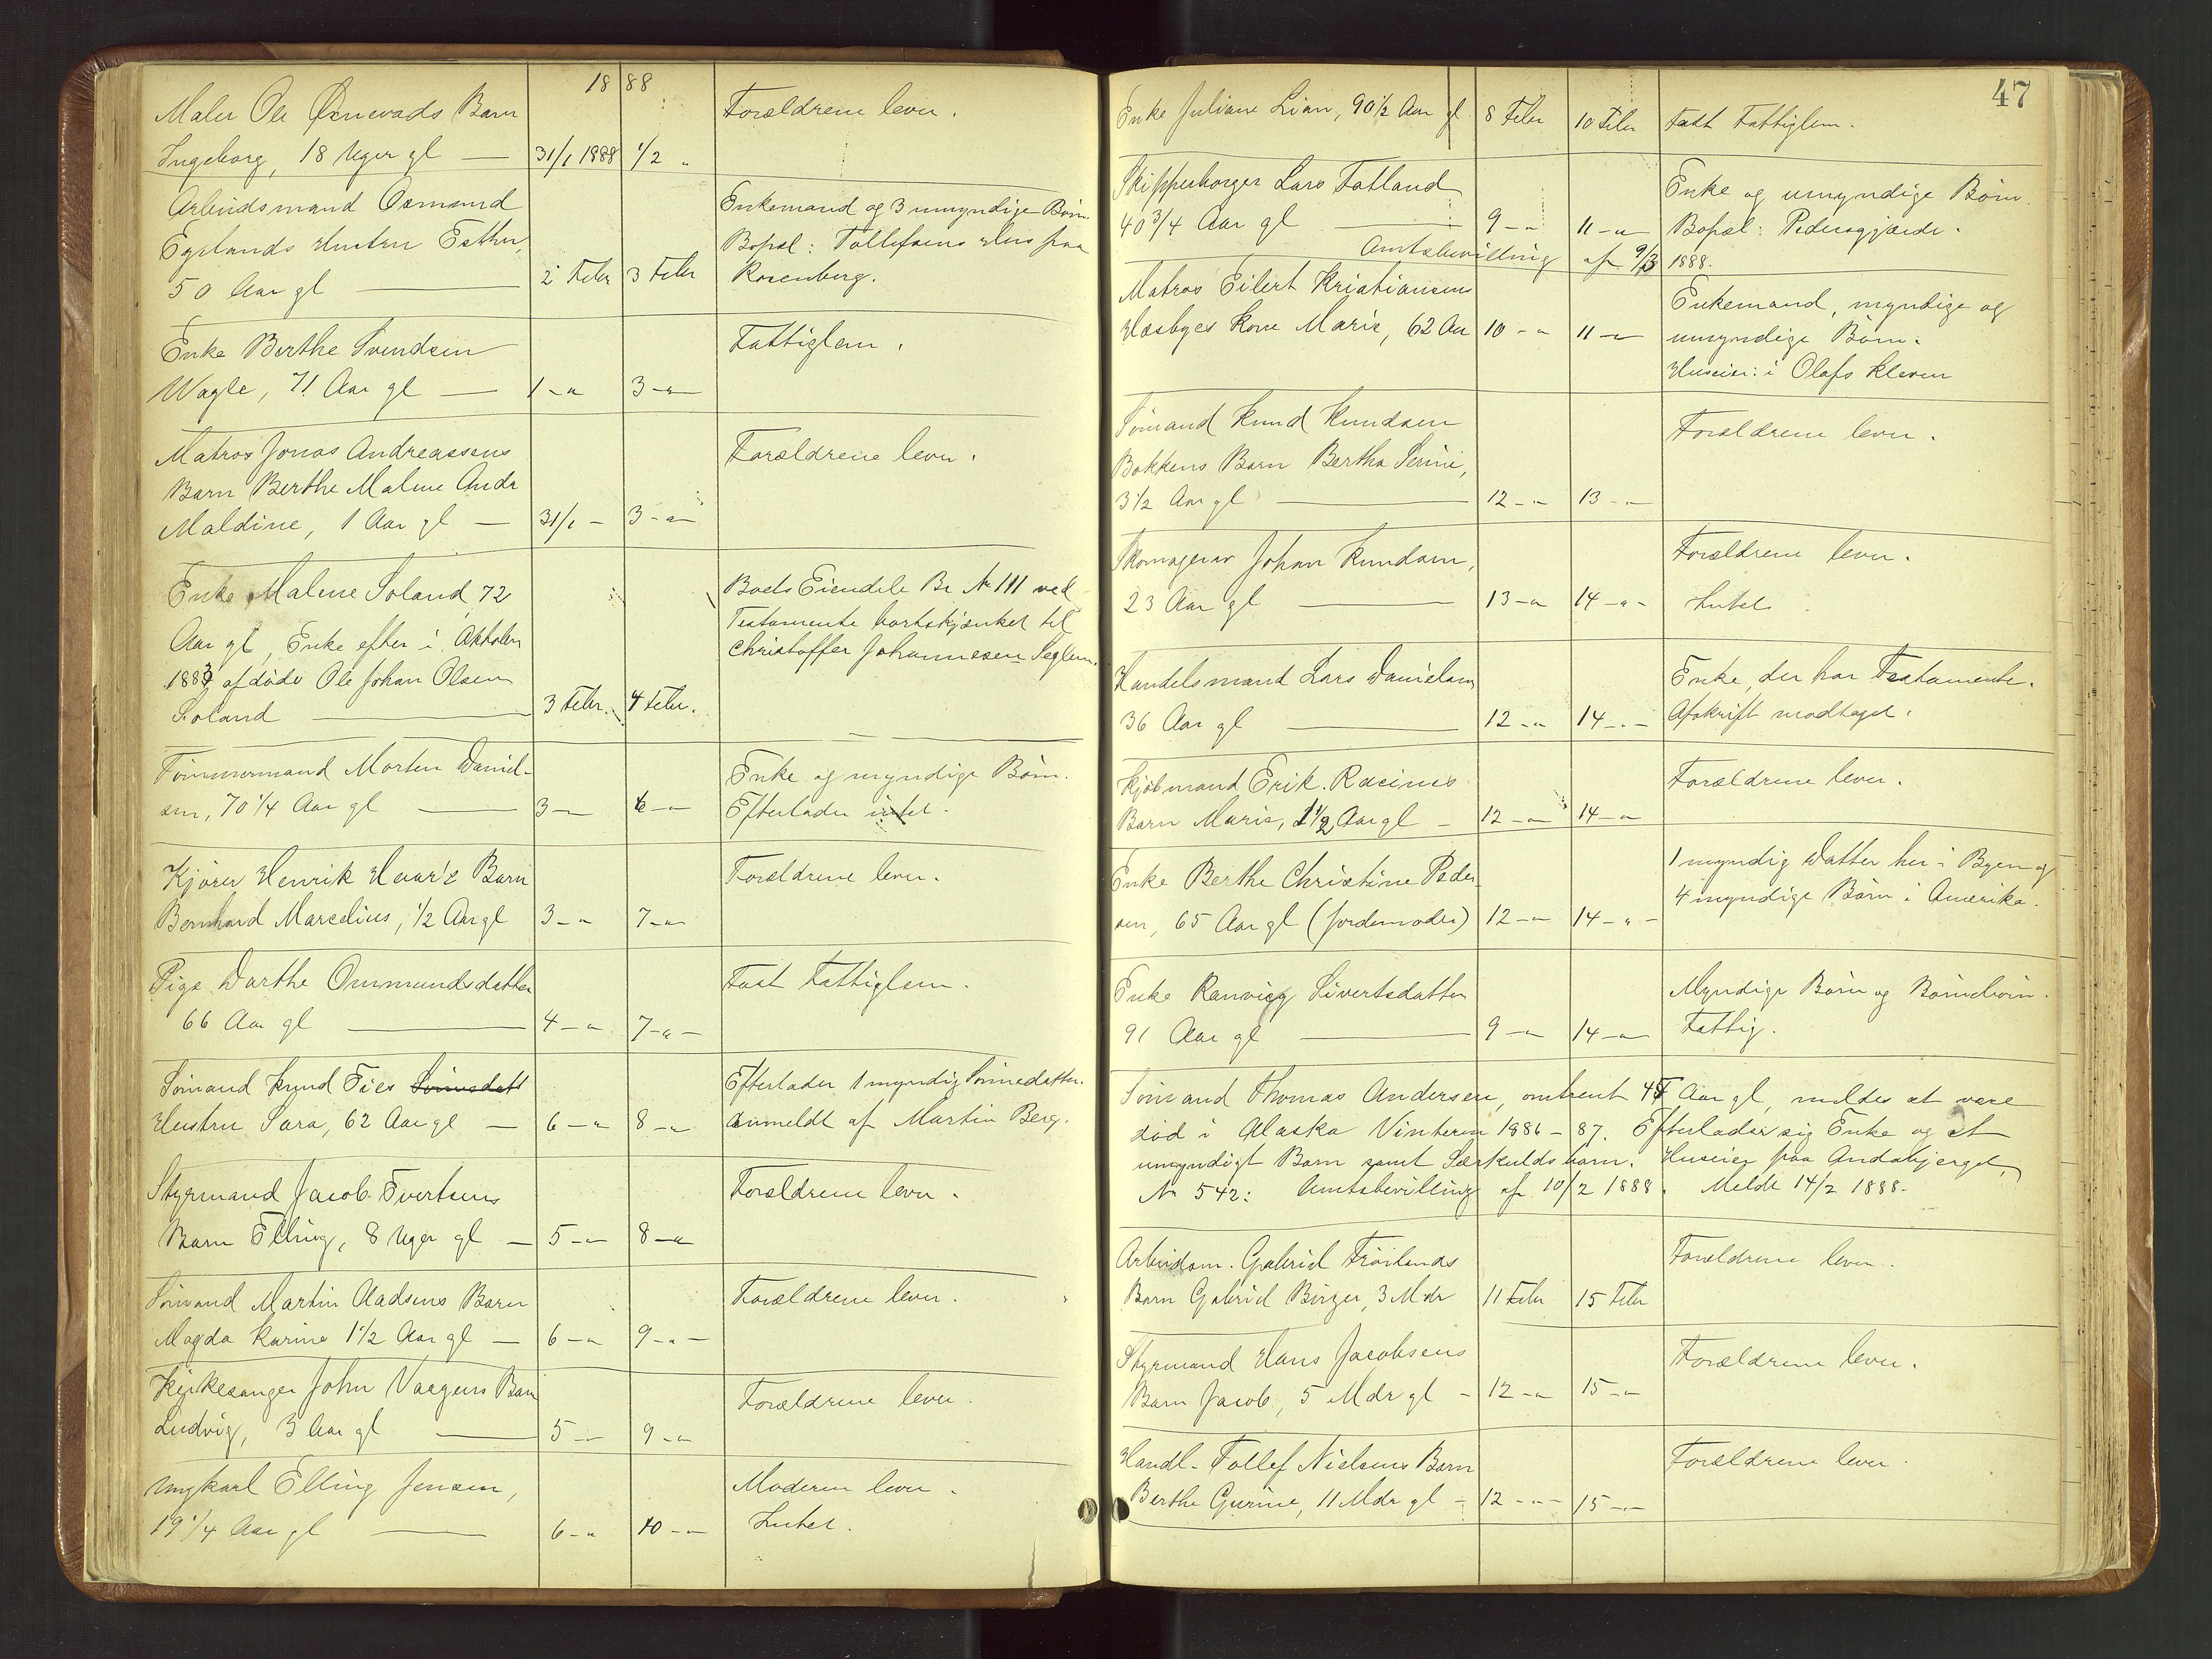 1888
Maler Ole Øxnevads Barn
Ingeborg, 18 Uger gl — 31/1 1888 1/2 „ Forældrene lever.
Arbeidsmand Osmund
Egelands Hustru Esther,
50 Aar gl — 2 Febr 3 Febr Enkemand og 3 umyndige Børn.
Bopæl: Tollefsens Hus paa
Rosenberg.
Enke Berthe Svendsen
Wagle, 71 Aar gl — 1 - „ 3 - „ Fattiglem.
Matros Jonas Andreassens
Barn Berthe Malene Andr
Maldine, 1 Aar gl — 31/1 - 3 - „ Forældrene lever.
Enke Malene Soland, 72
Aar gl, Enke efter i Oktober
1883 afdøde Ole Johan Olsen
Soland — 3 Febr. 4 Febr. Boets Eiendele Br No 111 ved
Testamente bortskjænket til
Christoffer Johannesen Seglem.
Tømmermand Morten Daniel-
sen, 70 1/4 Aar gl — 3 - 6 - „ Enke og myndige Børn.
Efterlader intet.
Kjører Henrik Barn
Bernhard Marcelius, 1/2 Aar gl 3 - „ 7 - „ Forældrene lever.
Pige Dorthe Ommundsdatter
66 Aar gl — 4 - „ 7 - „ - Fast Fattiglem.
Sømand Knud Ties Sønnedatt
Hustru Sara, 62 Aar gl — 6 - „ 8 - „ Efterlader 1 myndig Sønnedatter.
Anmeldt af Martin Berg.
Styrmand Jacob Evertsens
Barn Elling, 8 Uger gl — 5 - „ 8 - „ Forældrene lever.
Sømand Martin Aadsens Barn
Magda Karine 1 1/2 Aar gl — 6 - „ 9 - „ - Forældrene lever.
Kirkesanger John Barn
Ludvig, 3 Aar gl — 5 - „ 9 - „ Forældrene lever.
Ungkarl Elling Jensen,
19 1/4 Aar gl — 6 - „ 10 - „ Moderen lever.
Intet.
47
Enke Juliane Lian, 90 1/2 Aar gl 8 Febr 10 Febr Fast Fattiglem.
Skipperborger Lars Fatland
40 3/4 Aar gl — 9 - „ 11 - „ Enke og umyndige Børn.
Bopæl: Pedersgjærde.
Amtsbevilling af 9/3 1888.
Matros Eilert Kristiansen
Hæsbyes Kone Marie, 62 Aar 10 - „ 11 - „ Enkemand, myndige og
umyndige Børn.
Huseier: i Olafs Kleven
Sømand Knud Knudsen
Bakkens Barn Bertha Serine,
3 1/2 Aar gl — 12 - „ 13 - „ Forældrene lever.
Skomagersv Johan Knudsen,
23 Aar gl — 13 - „ 14 - „ - Forældrene lever.
Intet.
Handelsmand Lars Danielsen
36 Aar gl — 12 - „ 14 - „ - Enke, der har Testamente.
Afskrift modtaget.
Kjøbmand Erik Racines
Barn Marie, 1 1/2 Aar gl - 12 - „ 14 - „ Forældrene lever.
Enke Berthe Christine Peder-
sen, 65 Aar gl (Jordemoder) 12 - „ 14 - „ - 1 myndig Datter her i Byen og
4 myndige Børn i Amerika.
Enke Ranveig Sivertsdatter
91 Aar gl — 9 - „ 14 - „ Myndige Børn og Børnebørn.
Fattig.
Sømand Thomas Andersen, omtrent 45 Aar gl, meldes at være
død i Alaska Vinteren 1886-87. Efterlader sig Enke og et
umyndigt Barn samt Særkuldsbarn. Huseier paa Andabjerget,
No 542: Amtsbevilling af 10/2 1888. Meldt 14/2 1888.
Arbeidsm. Gabriel Frøilands
Barn Gabriel Birger, 3 Mdr 11 Febr 15 Febr Forældrene lever.
Styrmand Hans Jacobsens
Barn Jacob, 5 Mdr gl - 12 - „ 15 - „ Forældrene lever.
Handl. Tollef Nielsens Barn
Berthe Gurine, 11 Mdr gl - 12 - „ - 15 - „ Forældrene lever.